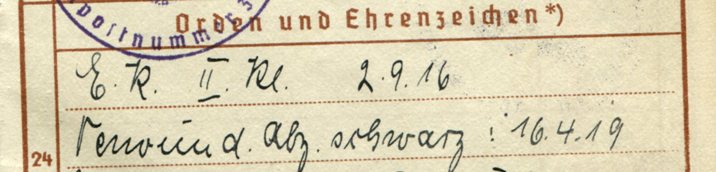 postnummer
Orden und Ehrenzeichen*)
E. K. II. Kl. 2.9.16
24 Verwund. Abz. schwarz: 16.4.19